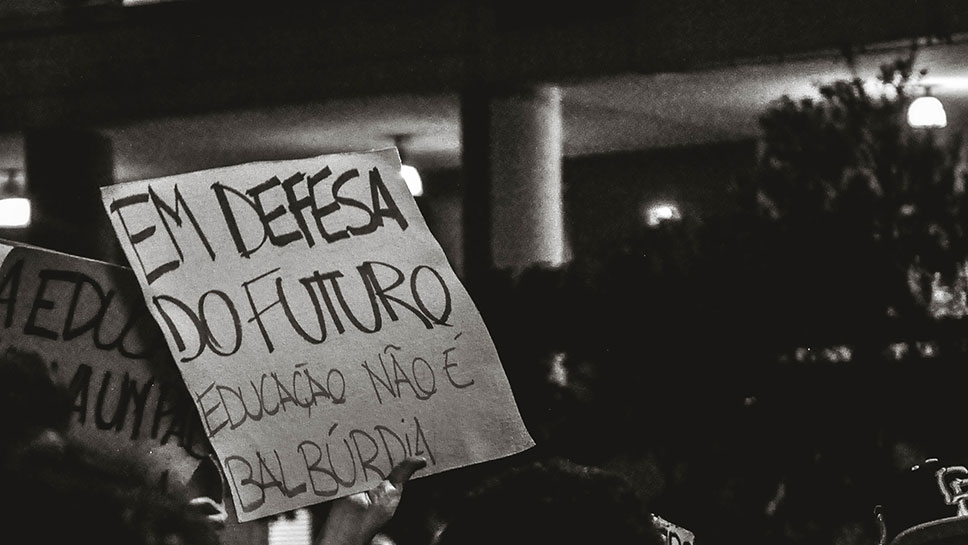 EM DEFESA
DO FUTURO
EDUCAÇÃO NÃO É
BALBÚRDIA
A EDUC
A UM PA